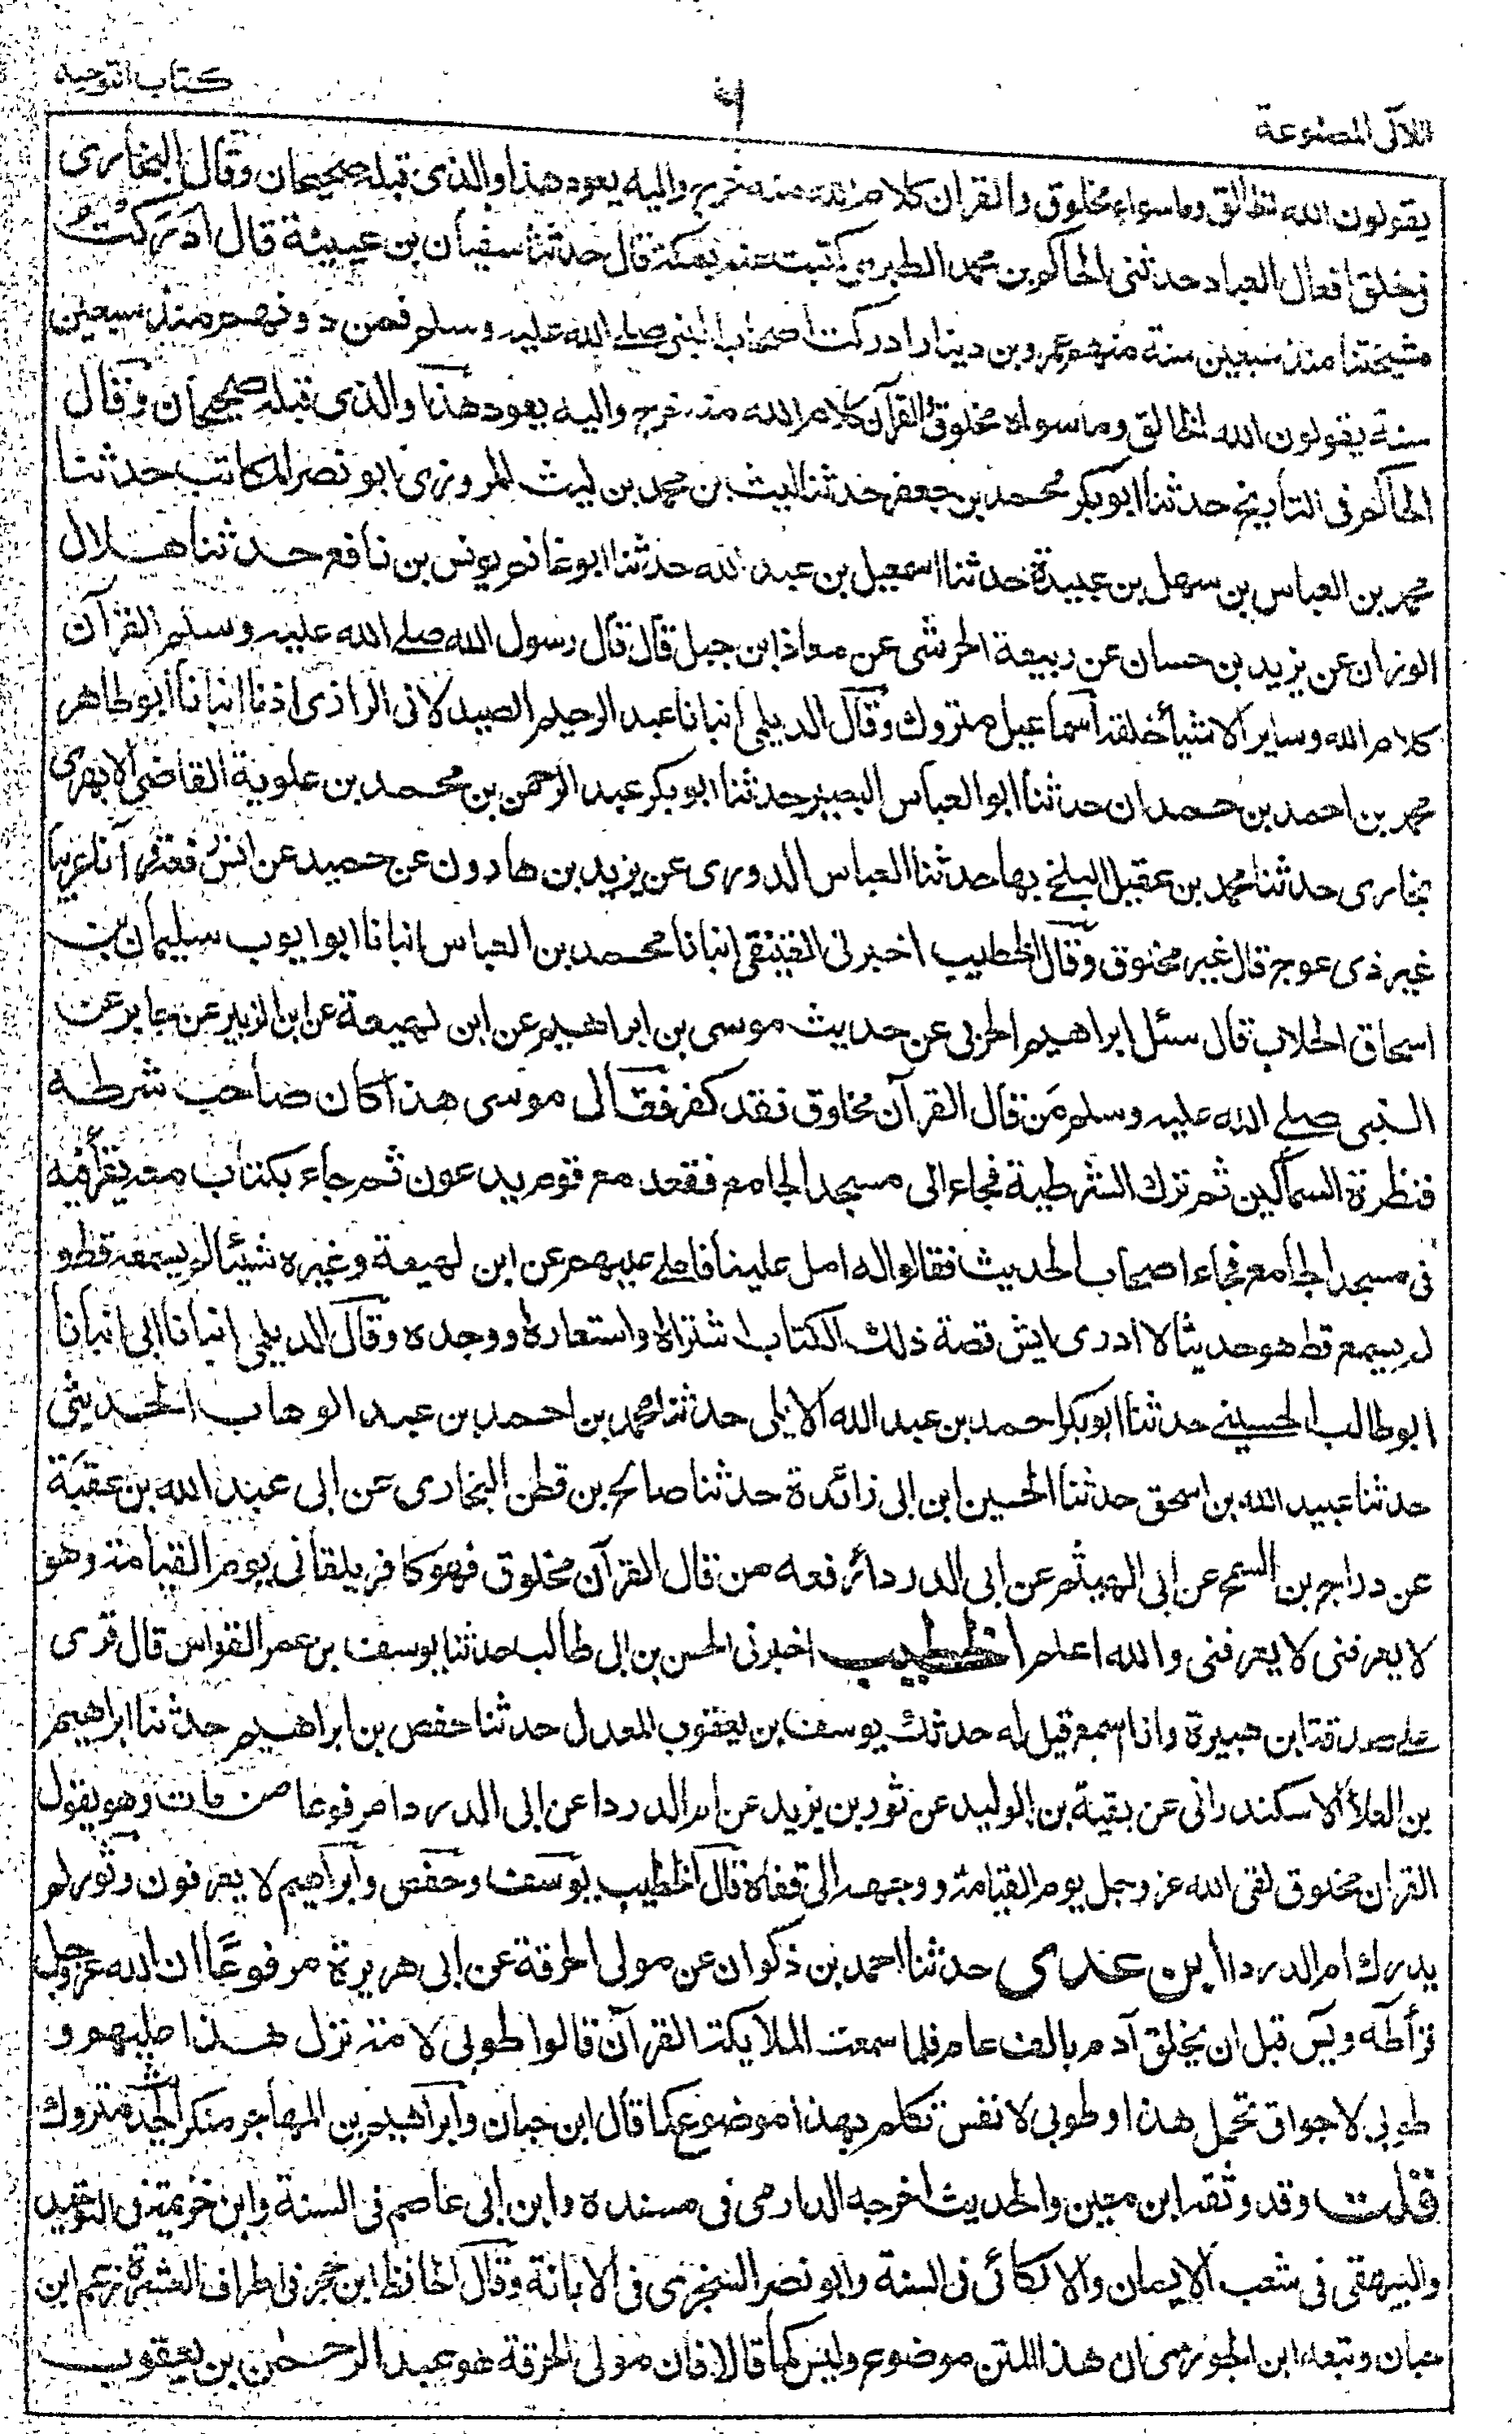 كتاب التوحيد
٦
اللآلى المصنوعة
يقولون الله الخالق وما سواه مخلوق والقران كلام الله منه خرج واليه يعود هذا والذى قبله صحيحان وقال البخارى
فى خلق افعال العباد حدثنى الحاكم بن محمد الطبرى كتبت عنه بمكة قال حدثنا سفيان بن عيينة قال ادركت
مشيختنا منذ سبعين سنة منهم عمرو بن دينار ادركت اصحاب النبى صلى الله عليه وسلم فمن دونهم منذ سبعين
سنة يقولون الله الخالق وما سواه مخلوق والقرآن كلام الله منه خرج واليه يعود هذا والذى قبله صحيحان وقال
الحاكم فى التاريخ حدثنا ابو بكر محمد بن جعفر حدثنا الليث بن محمد بن ليث المروزى ابو نصر الكاتب حدثنا
محمد بن العباس بن سهل بن عبيدة حدثنا اسمعيل بن عبد الله حدثنا ابو غانم يونس بن نافع حدثنا هلال
الوزان عن يزيد بن حسان عن ربيعة الحرشى عن معاذ ابن جبل قال قال رسول الله صلى الله عليه وسلم القرآن
كلام الله وساير الاشيأ خلقه اسماعيل متروك وقال الديلمى انبانا عبد الرحيم الصيدلانى الرازى اذنا انبانا ابو طاهر
محمد بن احمد بن حمدان حدثنا ابو العباس البصير حدثنا ابو بكر عبد الرحمن بن محمد بن علوية القاضى الابهرى
بخارى حدثنا محمد بن عقيل البلخى بها حدثنا العباس الدورى عن يزيد بن هارون عن حميد عن انس رفعه قرآنا عربيا
غير ذى عوج قال غير مخلوق وقال الخطيب اخبرنى العتيقى انبانا محمد بن العباس انبانا ابو ايوب سليمان بن
اسحاق الجلاب قال سئل ابراهيم الحربى عن حديث موسى بن ابراهيم عن ابن لهيعة عن ابن الزبير عن جابر عن
النبى صلى الله عليه وسلم من قال القرآن مخلوق فقد كفر فقالى موسى هذا كان صاحب شرطة
فنظرة السماكين ثم ترك الشرطية فجاء الى مسجد الجامع فقعد مع قوم يدعون ثم جاء بكتاب معه يقرأفيه
فى مسجد الجامع فجاء اصحاب الحديث فقالوا له امل علينا فاملى عليهم عن ابن لهيعة وغيره شيئا لم يسمعه قط و
لم يسمع قط هو حديثا لا ادرى ايش قصة ذلك الكتاب اشتراه واستعاره ووجده وقال الديلمى انبانا ابى انبانا
ابو طالب الحسينى حدثنا ابو بكر احمد بن عبد الله الايلى حدثنا محمد بن احمد بن عبد الوهاب الحديثى
حدثنا عبيد الله بن اسحق حدثنا الحسين ابن ابى زائدة حدثنا صالح بن قطن البخارى عن ابى عبد الله بن عقبة
عن دراج بن السمح عن ابى الهيثم عن ابى الدرداء رفعه من قال القرآن مخلوق فهو كافر يلقانى يوم القيامة وهو
لا يعرفنى لا يعرفنى والله اعلم الخطيب اخبرنى الحسن بن ابى طالب حدثنا يوسف بن عمر القواس قال قرى
على صدقة ابن هبيرة وانا اسمع قيل له حدثك يوسف بن يعقوب المعدل حدثنا حفص بن ابراهيم حدثنا ابراهيم
بن العلأ الاسكندرانى عن بقية بن الوليد عن ثور بن يزيد عن ام الدردا عن ابى الدردا مرفوعا من مات وهو يقول
القران مخلوق لقى الله عز وجل يوم القيامة ووجهه الى قفاه قال الخطيب يوسف وحفص وابراهيم لا يعرفون وثور لم
يدرك ام الدردا ابن عدى حدثنا احمد بن ذكوان عن مولى الحرقة عن ابى هريرة مرفوعا ان الله عزوجل
قرأ طه ويس قبل ان يخلق آدم بالف عام فلما سمعت الملايكة القرآن قالوا طوبى لامة نزل هذا عليهم و
طوبى لاجواف تحمل هذا وطوبى لانفس تكلم بهذا موضوع كما قال ابن حبان وابراهيم بن المهاجر منكر الحديث متروك
قلت وقد وثقه ابن معين والحديث اخرجه الدارمى فى مسنده وابن ابى عاصم فى السنة وابن خزيمة فى التوحيد
والبيهقى فى شعب الايمان والالكائى فى السنة وابو نصر السنجزى فى الابانة وقال الحافظ ابن حجر فى اطراف العشرة زعم ابن
حبان وتبعه ابن الجوزى ان هذا المتن موضوع وليس كما قالا فان مولى الحرقة هو عبد الرحمن بن يعقوب